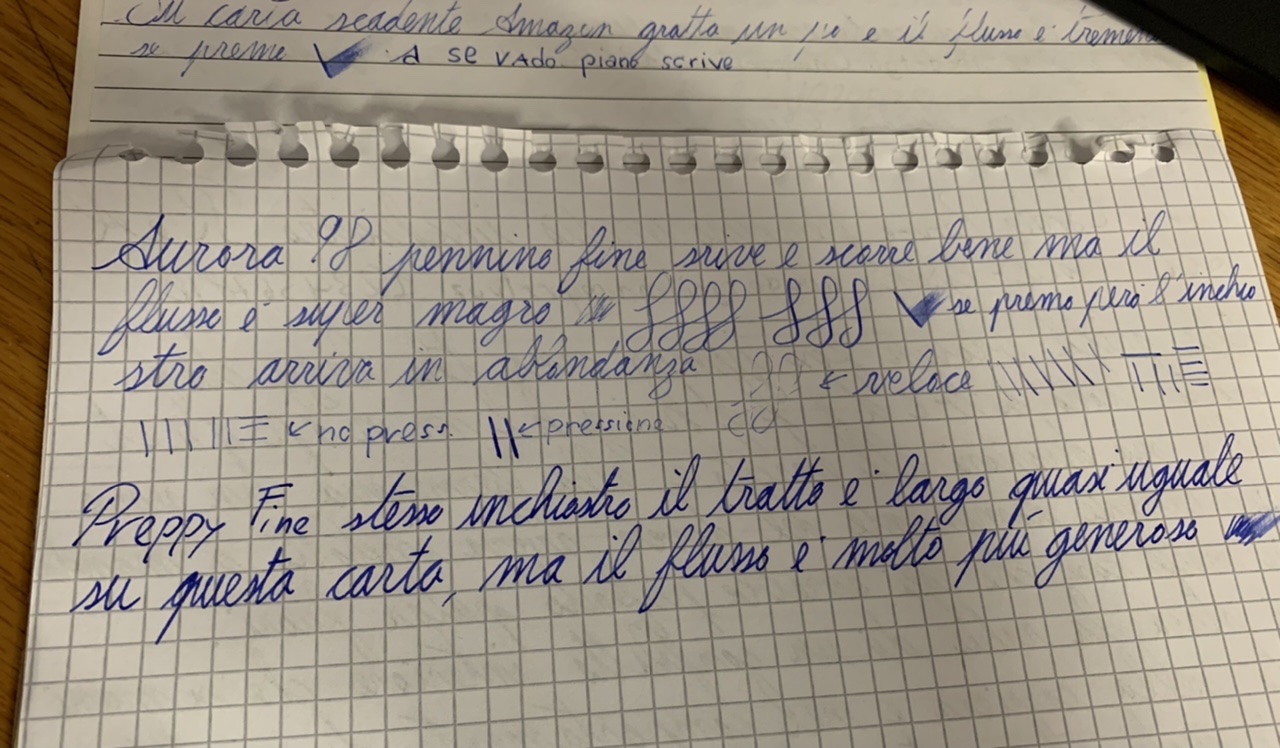 su carta scadente Amazon gratta un po e il flusso è
se preme A se vado piano scrive
Aurora 98 pennino fine scrive e scorre bene ma il
flusso è super magro se premo però l'inchio
stro arriva in abbondanza ← veloce
← no press. ← pressione
Preppy Fine stesso inchiostro il tratto è largo quasi uguale
su questa carta, ma il flusso è molto più generoso